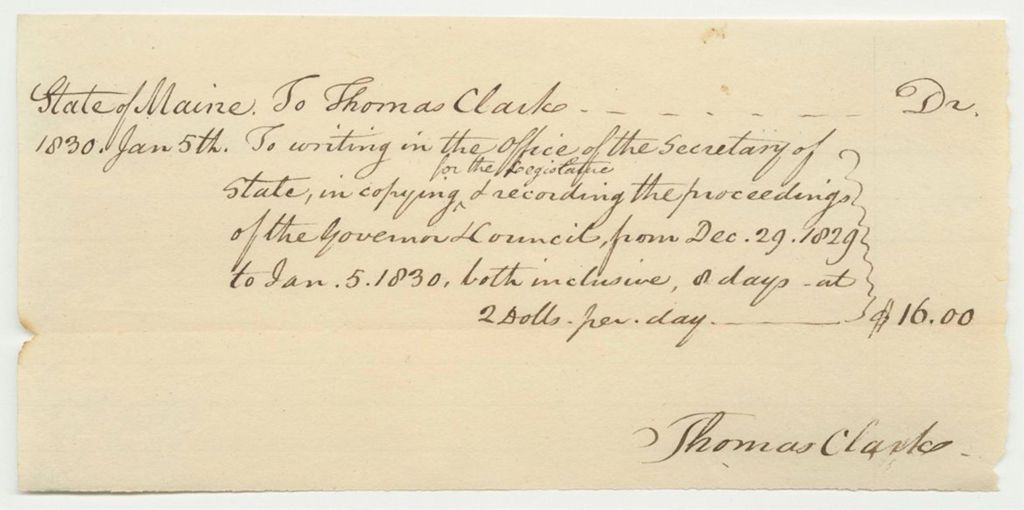 State of Maine. To Thomas Clark - - - - - - - Dr.
1830. Jan 5th. To writing in the Office of the Secretary of
for the Legislature
State, in copying ^ & recording the proceedings
of the Governor & Council, from Dec. 29. 1829
to Jan. 5. 1830, both inclusive, 8 days - at
2 Dolls. per. day ——— $16.00
Thomas Clark